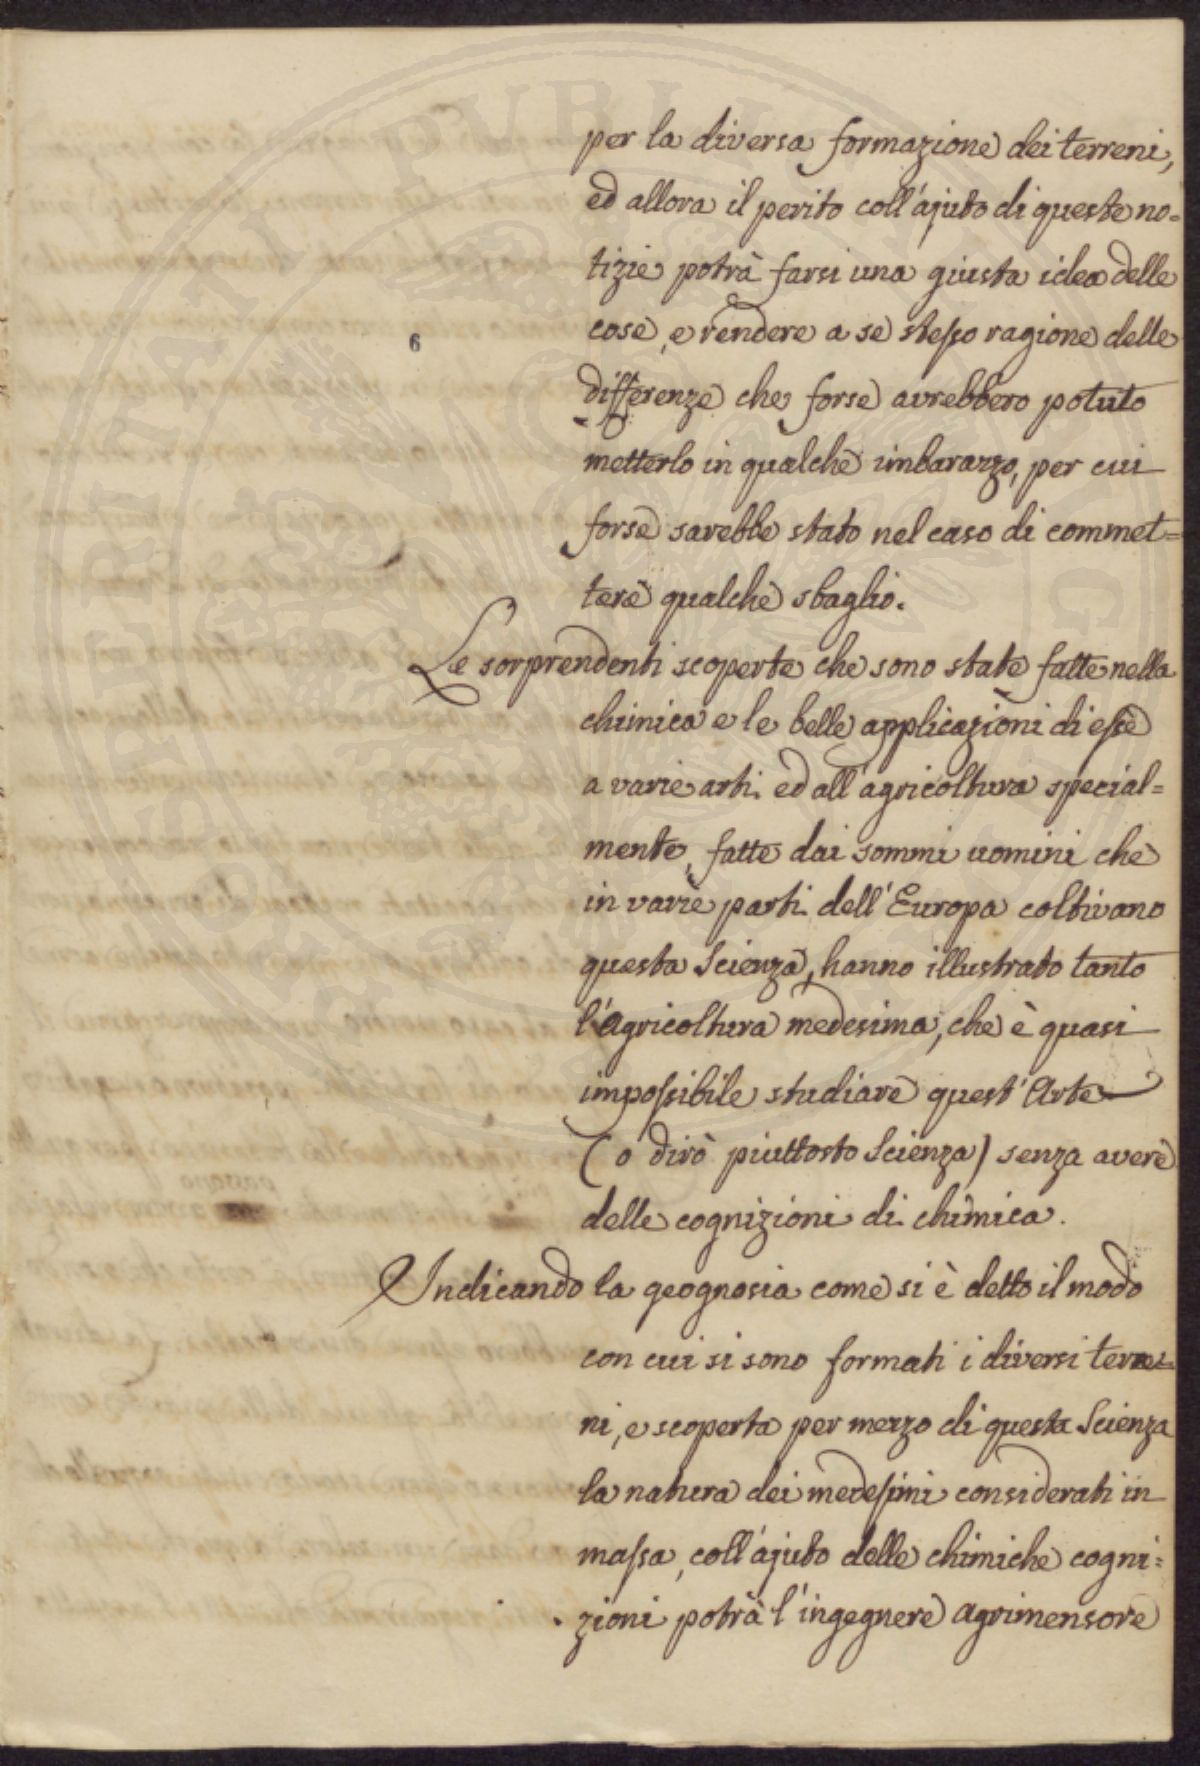 per la diversa formazione dei terreni,
ed allora il perito coll'ajuto di queste no=
tizie potrà farsi una giusta idea delle
6
cose, e rendere a se stesso ragione delle
differenze che forse avrebbero potuto
metterlo in qualche imbarazzo, per cui
forse sarebbe stato nel caso di commet=
tere qualche sbaglio.
Le sorprendenti scoperte che sono state fatte nella
chimica e le belle applicazioni di esse
a varie arti ed all'agricoltura special=
mente, fatte dai sommi uomini che
in varie parti dell'Europa coltivano
questa Scienza, hanno illustrato tanto
l'Agricoltura medesima, che è quasi
impossibile studiare quest'Arte
(o dirò piuttosto Scienza) senza avere
delle cognizioni di chimica.
Indicando la geognosia come si è detto il modo
con cui si sono formati i diversi terre=
ni, e scoperta per mezzo di questa Scienza
la natura dei medesimi considerati in
massa, coll'ajuto delle chimiche cogni=
zioni potrà l'ingegnere agrimensore